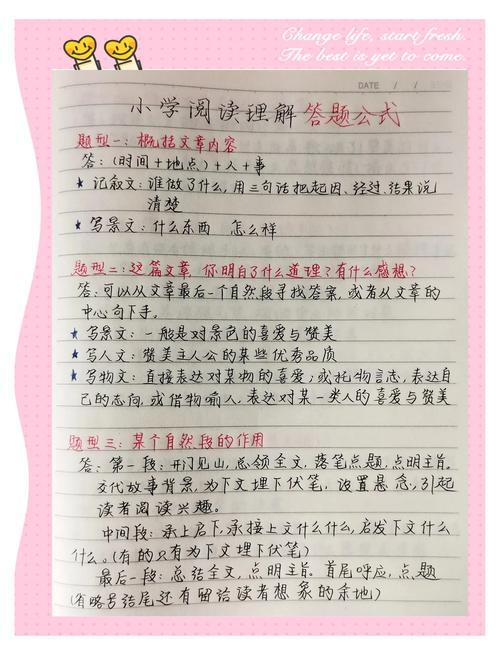 Change life, start fresh.
The best is yet to come.
DATE / /
小学阅读理解答题公式
题型一：概括文章内容
答：(时间+地点)+人+事
★ 记叙文：谁做了什么，用三句话把起因、经过、结果说
清楚
★ 写景文：什么东西 怎么样
题型二：这篇文章，你明白了什么道理？有什么感想？
答：可以从文章最后一个自然段寻找答案，或者从文章的
中心句下手。
★ 写景文：一般是对景色的喜爱与赞美
★ 写人文：赞美主人公的某些优秀品质
★ 写物文：直接表达对某物的喜爱；或托物言志，表达自
己的志向，或借物喻人，表达对某一类人的喜爱与赞美
题型三：某个自然段的作用
答：第一段：开门见山，总领全文，落笔点题，点明主旨。
交代故事背景，为下文埋下伏笔，设置悬念，引起
读者阅读兴趣。
中间段：承上启下，承接上文什么什么，启发下文什么
什么。(有的只有为下文埋下伏笔)
最后一段：总结全文，点明主旨。首尾呼应，点题
(省略号结尾还有留给读者想象的余地)